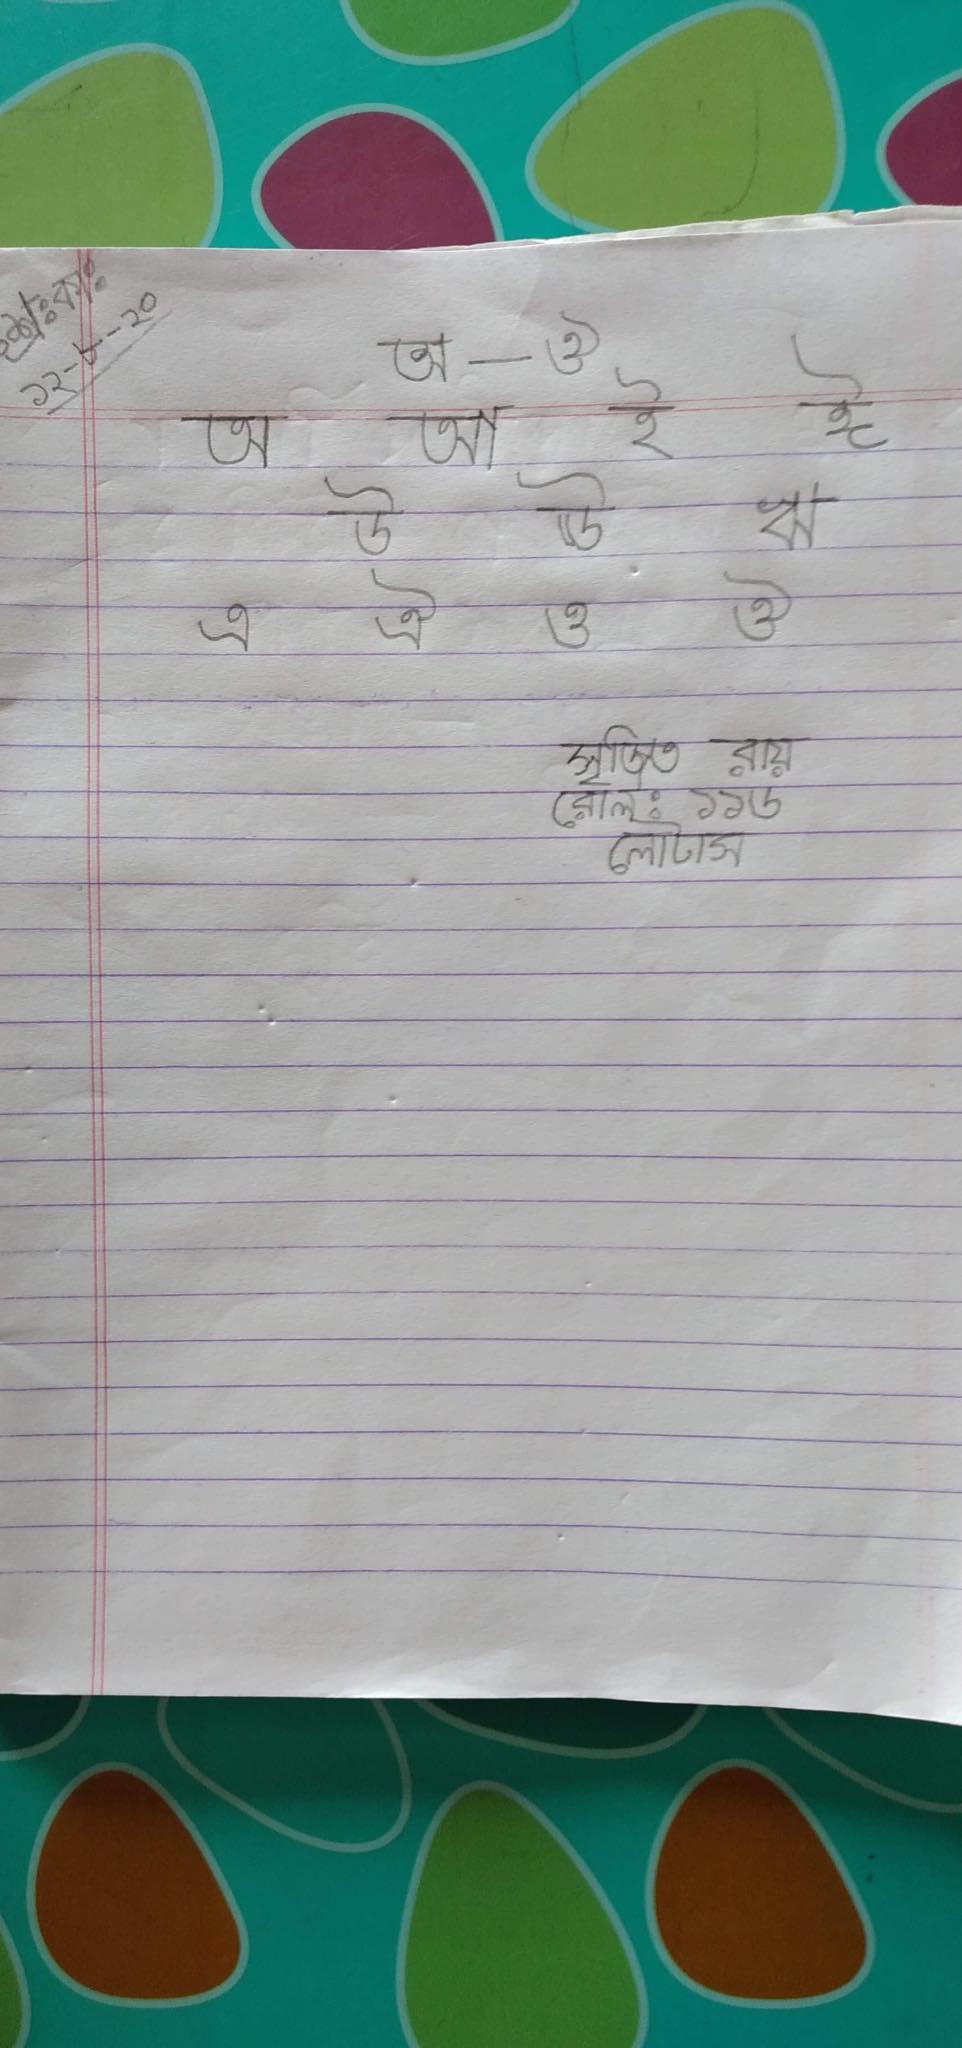 শ্রেঃকাঃ
১২-৮-২০
অ — ঔ
অ আ ই ঈ
উ ঊ ঋ
এ ঐ ও ঔ
সৃজিত রায়
রোল: ১১৬
লোটাস